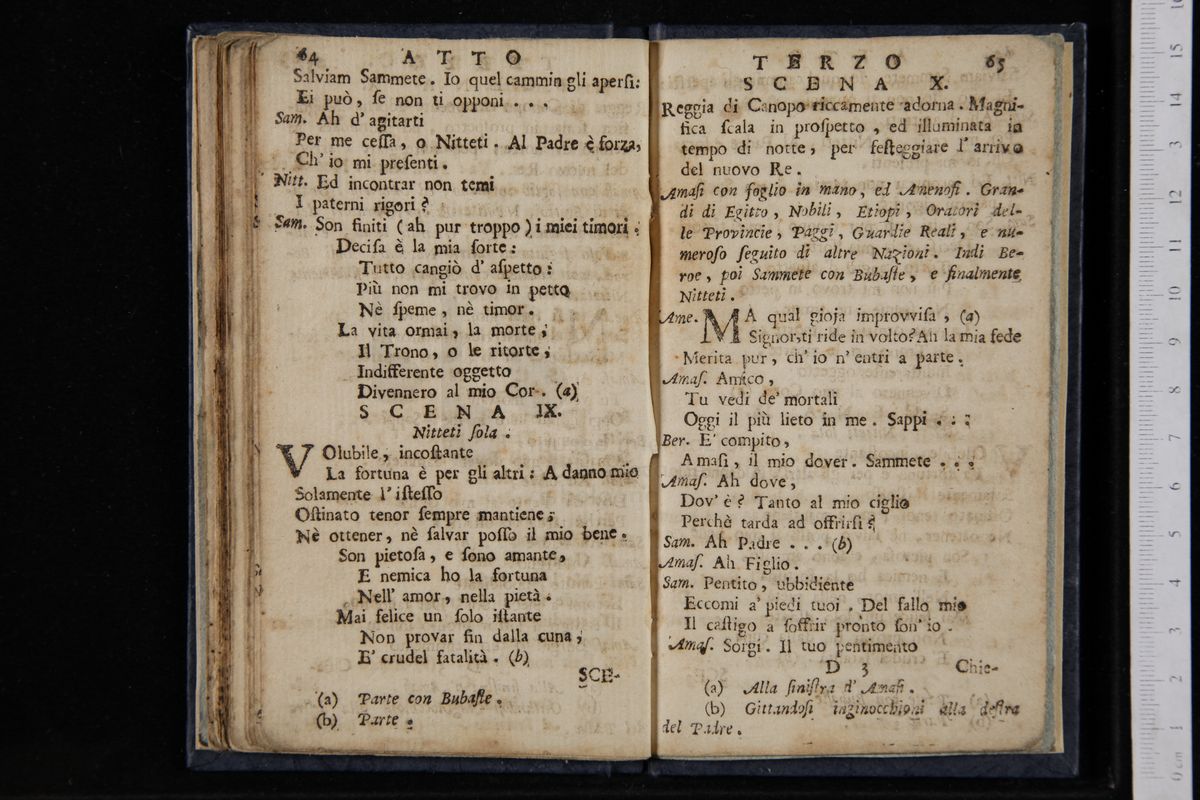 64 ATTO
Salviam Sammete. Io quel cammin gli aperſi:
Ei può, ſe non ti opponi . . .
Sam. Ah d' agitarti
Per me ceſſa, o Nitteti. Al Padre è forza,
Ch' io mi preſenti.
Nitt. Ed incontrar non temi
I paterni rigori?
Sam. Son finiti (ah pur troppo) i miei timori.
Deciſa è la mia ſorte:
Tutto cangiò d' aſpetto:
Più non mi trovo in petto
Nè ſpeme, nè timor.
La vita ormai, la morte,
Il Trono, o le ritorte,
Indifferente oggetto
Divennero al mio Cor. (a)
SCENA IX.
Nitteti ſola.
VOlubile, incoſtante
La fortuna è per gli altri: A danno mio
Solamente l' iſteſſo
Oſtinato tenor ſempre mantiene;
Nè ottener, nè ſalvar poſſo il mio bene.
Son pietoſa, e ſono amante,
E nemica ho la fortuna
Nell' amor, nella pietà.
Mai felice un ſolo iſtante
Non provar fin dalla cuna,
E' crudel fatalità. (b)
SCE-
(a) Parte con Bubaſte.
(b) Parte.
TERZO 65
SCENA X.
Reggia di Canopo riccamente adorna. Magni-
fica ſcala in proſpetto, ed illuminata in
tempo di notte, per feſteggiare l' arrivo
del nuovo Re.
Amaſi con foglio in mano, ed Amenofi. Gran-
di di Egitto, Nobili, Etiopi, Oratori del-
le Provincie, Paggi, Guardie Reali, e nu-
meroſo ſeguito di altre Nazioni. Indi Be-
roe, poi Sammete con Bubaſte, e finalmente
Nitteti.
Ame. MA qual gioja improvviſa, (a)
Signor, ti ride in volto? Ah la mia fede
Merita pur, ch' io n' entri a parte.
Amaſ. Amico,
Tu vedi de' mortali
Oggi il più lieto in me. Sappi . . .
Ber. E' compito,
Amaſi, il mio dover. Sammete . . .
Amaſ. Ah dove,
Dov' è? Tanto al mio ciglio
Perchè tarda ad offrirſi?
Sam. Ah Padre . . . (b)
Amaſ. Ah Figlio.
Sam. Pentito, ubbidiente
Eccomi a' piedi tuoi. Del fallo mio
Il caſtigo a ſoffrir pronto ſon' io.
Amaſ. Sorgi. Il tuo pentimento
D 3 Chie-
(a) Alla ſiniſtra d' Amaſi.
(b) Gittandoſi inginocchioni alla deſtra
del Padre.